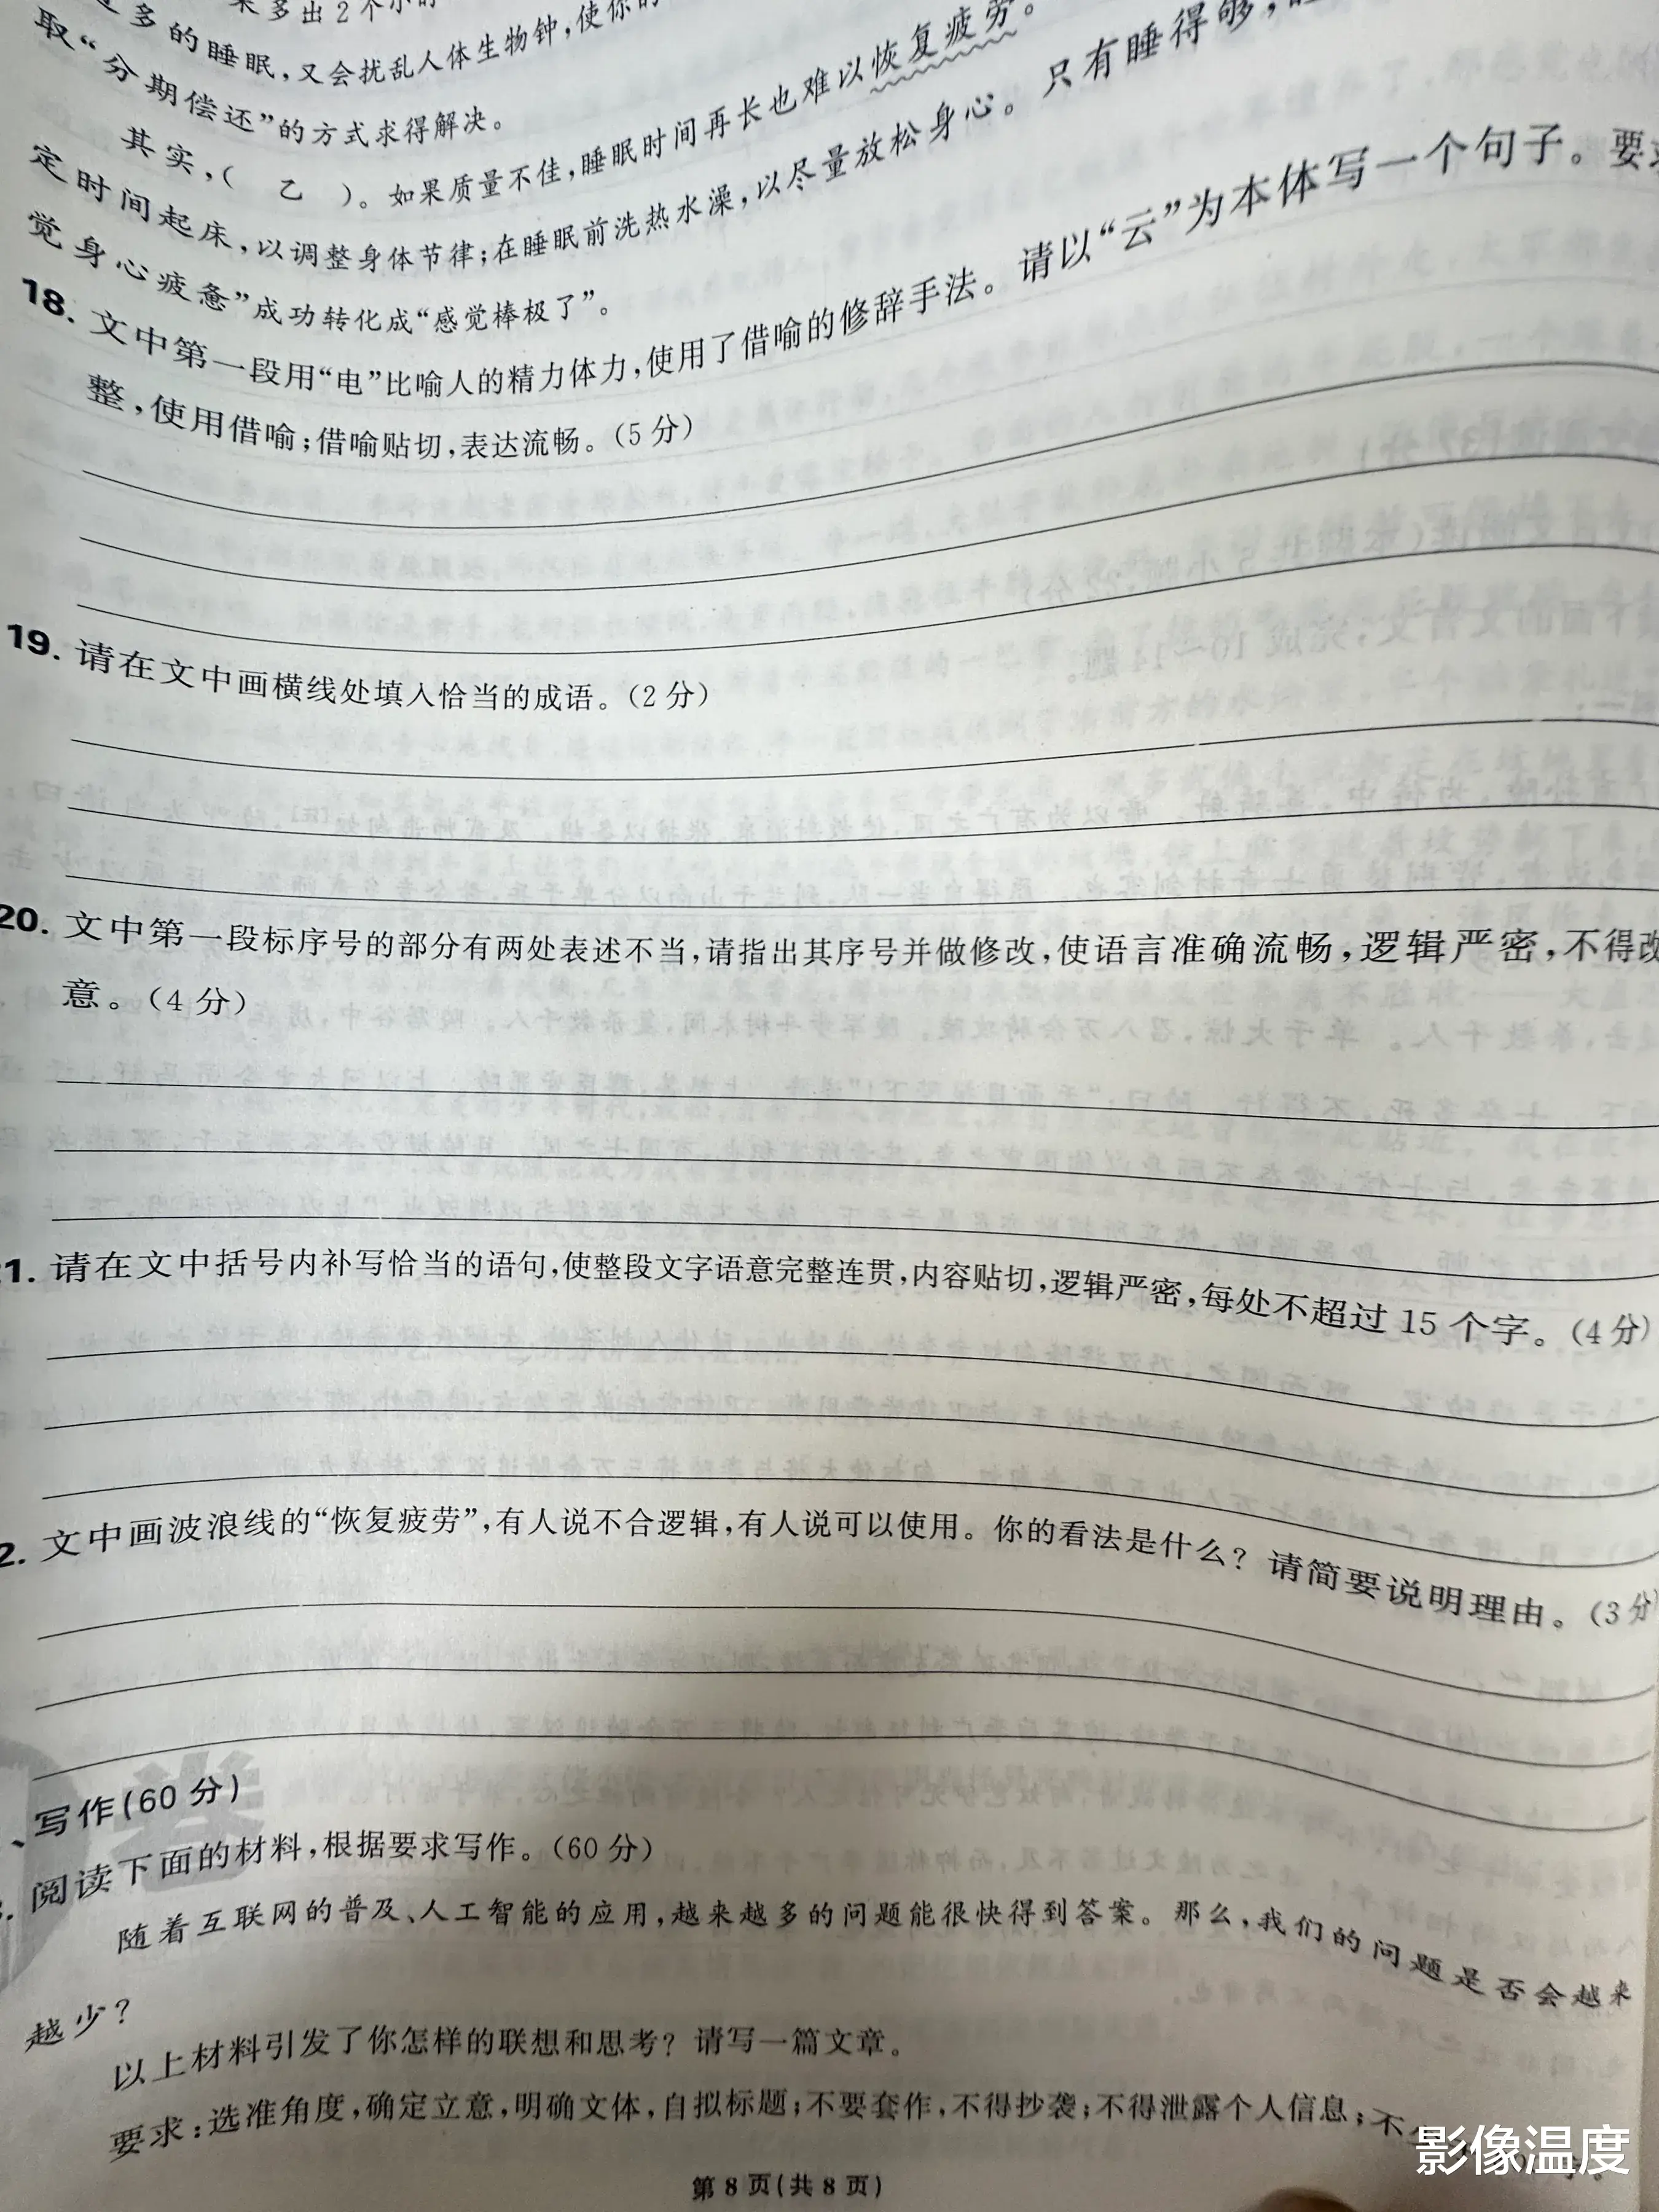 来多出2个小时
多的睡眠，又会扰乱人体生物钟，使你的
取“分期偿还”的方式求得解决。
其实，（ 乙 ）。如果质量不佳，睡眠时间再长也难以恢复疲劳。
定时间起床，以调整身体节律；在睡眠前洗热水澡，以尽量放松身心。只有睡得够，
觉身心疲惫”成功转化成“感觉棒极了”。
18. 文中第一段用“电”比喻人的精力体力，使用了借喻的修辞手法。请以“云”为本体写一个句子。要求
整，使用借喻；借喻贴切，表达流畅。（5分）
19. 请在文中画横线处填入恰当的成语。（2分）
20. 文中第一段标序号的部分有两处表述不当，请指出其序号并做修改，使语言准确流畅，逻辑严密，不得改
意。（4分）
1. 请在文中括号内补写恰当的语句，使整段文字语意完整连贯，内容贴切，逻辑严密，每处不超过15个字。（4分）
2. 文中画波浪线的“恢复疲劳”，有人说不合逻辑，有人说可以使用。你的看法是什么？请简要说明理由。（3分）
、写作（60分）
阅读下面的材料，根据要求写作。（60分）
随着互联网的普及、人工智能的应用，越来越多的问题能很快得到答案。那么，我们的问题是否会越来
越少？
以上材料引发了你怎样的联想和思考？请写一篇文章。
要求：选准角度，确定立意，明确文体，自拟标题；不要套作，不得抄袭；不得泄露个人信息；不
第8页（共8页）
影像温度